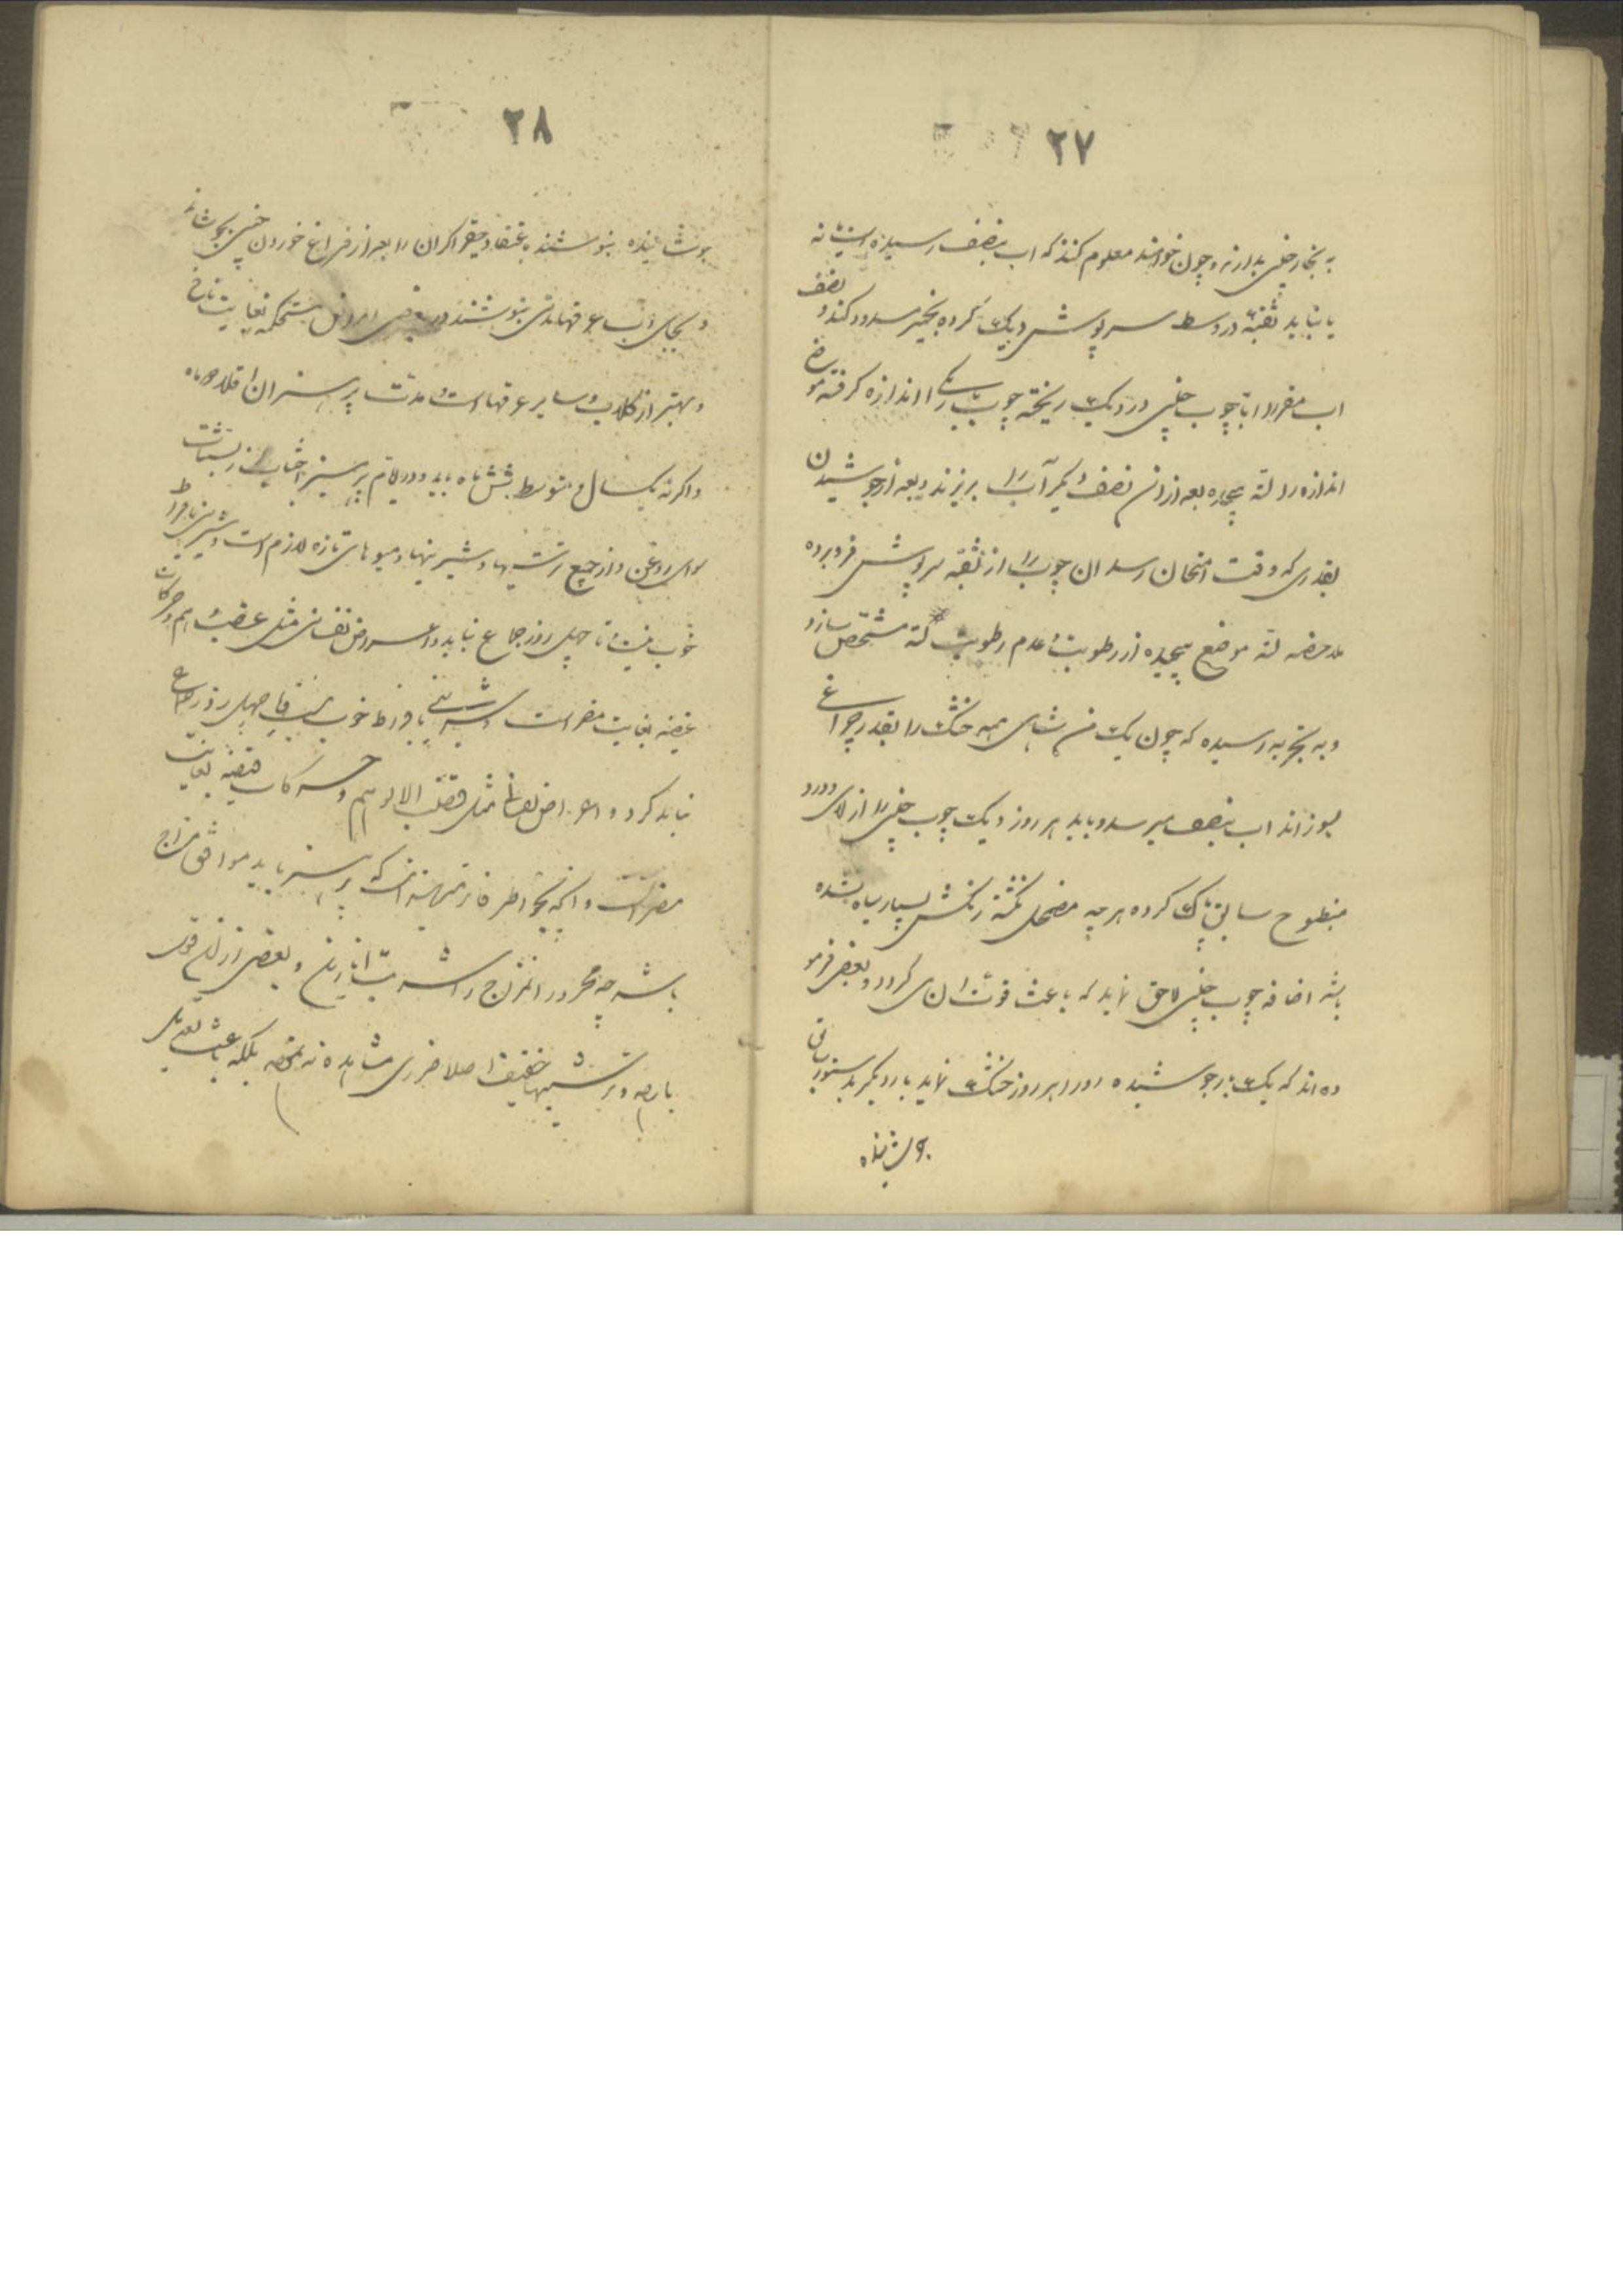 ۲۷
به بخار چینی بدارند و چون خواهند معلوم کنند که اب بنصف رسیده است یا نه
یا نیاید ثقبهٔ در وسط سرپوش دیک کرده بخمیر مسدود کند و نصف
اب مقرر را با چوب چینی در دیک ریخته چوب باریکی را اندازه کرفته موضع
اندازه را لته پیچیده بعد ازان نصف دیکر آب را بریزند و بعد از جوشیدن
بقدری که وقت امتحان رسد ان چوب را از ثقبه سرپوش فرو برده
ملاحضه لته موضع پیچیده از رطوبت و عدم رطوبت لته مشخص سازد
و به تجربه رسیده که چون یک من شاهی همه خشک را بقدر چراغ
بسوزانند اب بنصف میرسد و باید هر روز دیک چوب چینی را از لای و درد
مطبوح سابق پاک کرده هر چه مضمحل نکشته رنکش بسیار سیاه نشده
باشد اضافه چوب چینی لاحق نماید که باعث قوت ان می کردد و بعضی فرمو
ده اند که یک بار جوشیده را در هر روز خشک نماید بار دیکر بدستور باقی
جوشانیده
۲۸
جوشانیده بنوشند باعتقاد حقیر اکر ان را بعد از فراغ خوردن چینی بجوشانند
و بجای اب عرقها مدتی بنوشند در امراض مستحکمه بغایت نافع
و بهتر از کلاب و سایر عرقها است و مدت پرهیز ان اقلا دو ماه
و اکر نه یکسال و متوسط شش ماه باید و در ایام پرهیز اجتناب از لبنیات
سوای روغن و از جمیع ترشیها و شیرینها و میوهای تازه لازم است و شیرینی بافراط
خوب نیست و تا چهل روز جماع نباید و اعراض نفسانی مثل غضب و هم و حرکات
عنیفه بغایت مضر است و شیرینی بافراط خوب نیست و تا چهل روز جماع
نباید کرد و اعراض نفسانی مثل غضب الا و هم و حرکات عنیفه بغایت
مضر است و انچه بخاطر فاتر میرسد انست که پرهیز باید موافق مزاج
باشد چه محرور المزاج را شربت انارین و بعضی از فواکه
بارده و ترشیها خفیف اصلا ضرری مشاهده نه نموده بلکه باعث تعدیل